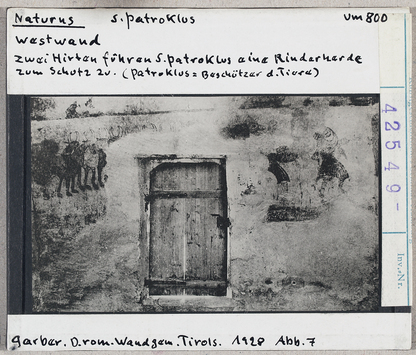 Naturns S. Patroklus um 800
Westwand
Zwei Hirten führen S. Patroklus eine Rinderherde
zum Schutz zu. (Patroklus = Beschützer d. Tiere)
42549-
Inv.-Nr.
Garber. D. rom. Wandgem. Tirols. 1928 Abb. 7